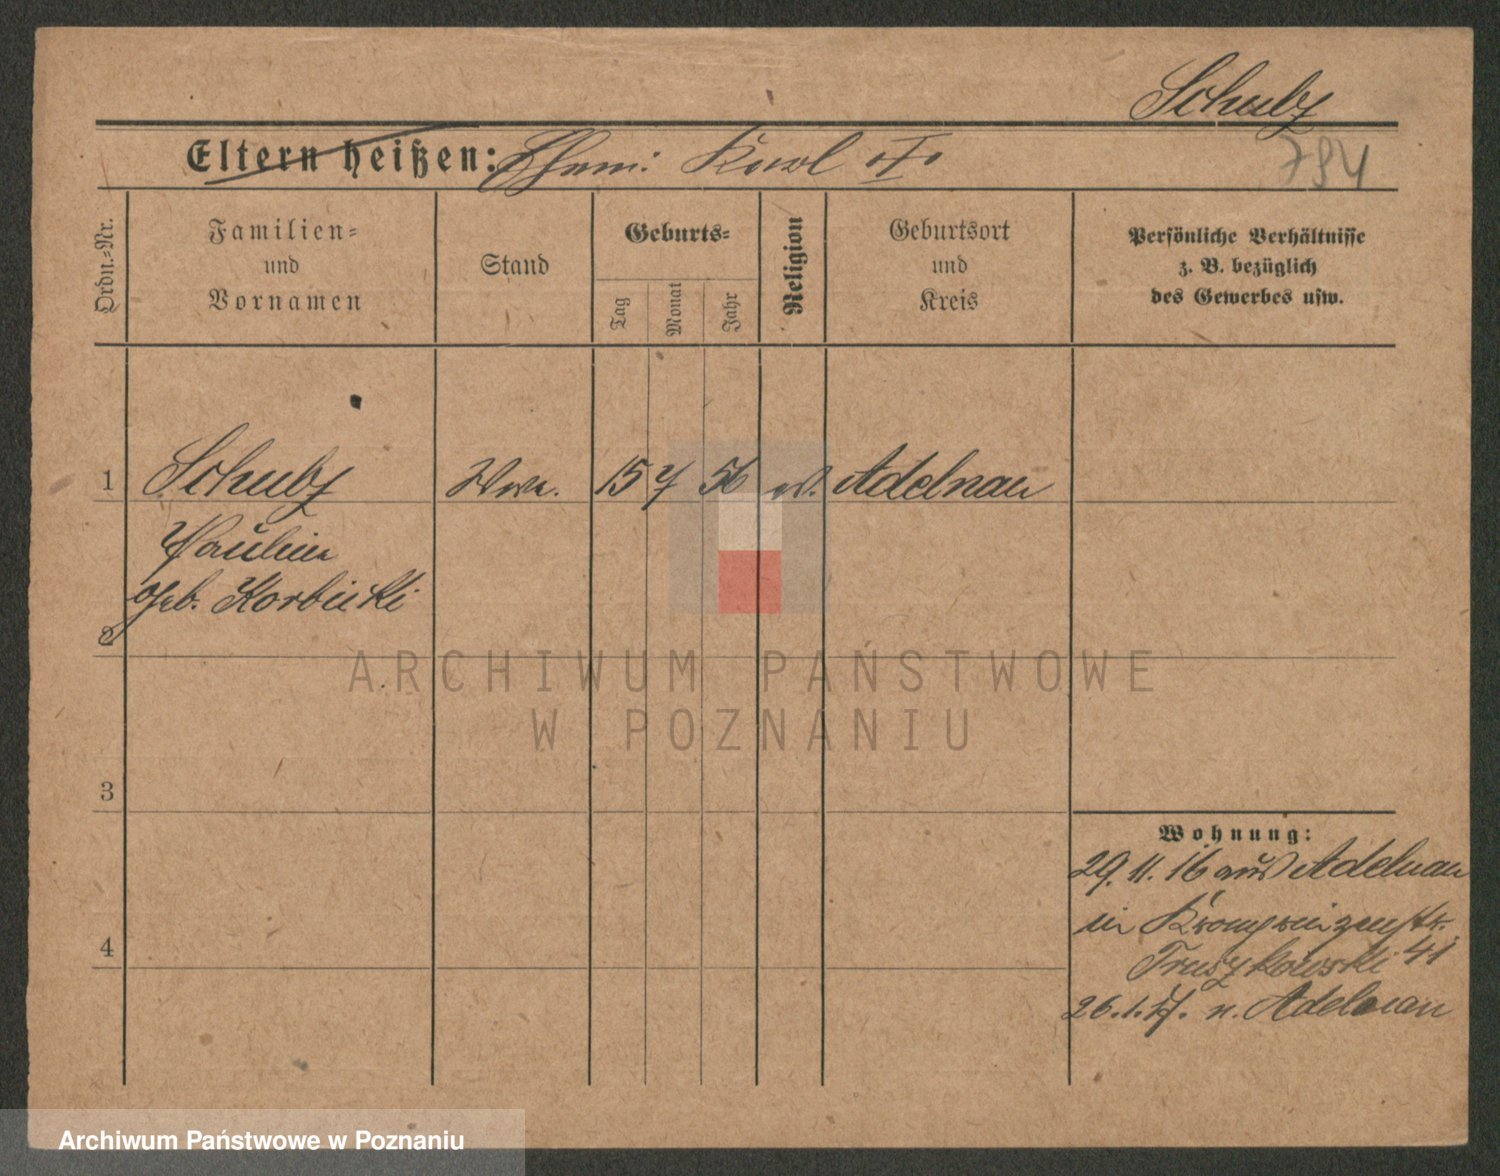 Schulz
Eltern heißen: Ehem: Karl †
794
Ordn.-Nr.
Familien-
und
Vornamen
Stand
Geburts-
Tag
Monat
Jahr
Religion
Geburtsort
und
Kreis
Persönliche Verhältnisse
z. B. bezüglich
des Gewerbes usw.
1 Schulz Wwe. 15 7 56 ev. Adelnau
Pauline
geb. Korbicki
2
3
4
Wohnung:
29. 11. 16 aus Adelnau
in Kronprinzenstr.
Truszkowski 41
26. 1. 17. n. Adelnau
ARCHIWUM PAŃSTWOWE
W POZNANIU
Archiwum Państwowe w Poznaniu